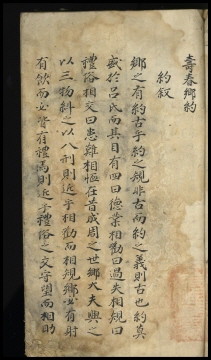 壽春鄉約
約叙
鄉之有約古乎約之規非古而約之義則古也約莫
盛於呂氏而其目有四曰德業相勸曰過失相規曰
禮俗相交曰患難相恤在昔成周之世鄉大夫興之
以三物糾之以八刑則近乎相勸而相規鄉必有射
有飮而必皆有禮焉則近乎禮俗之交守望而相助